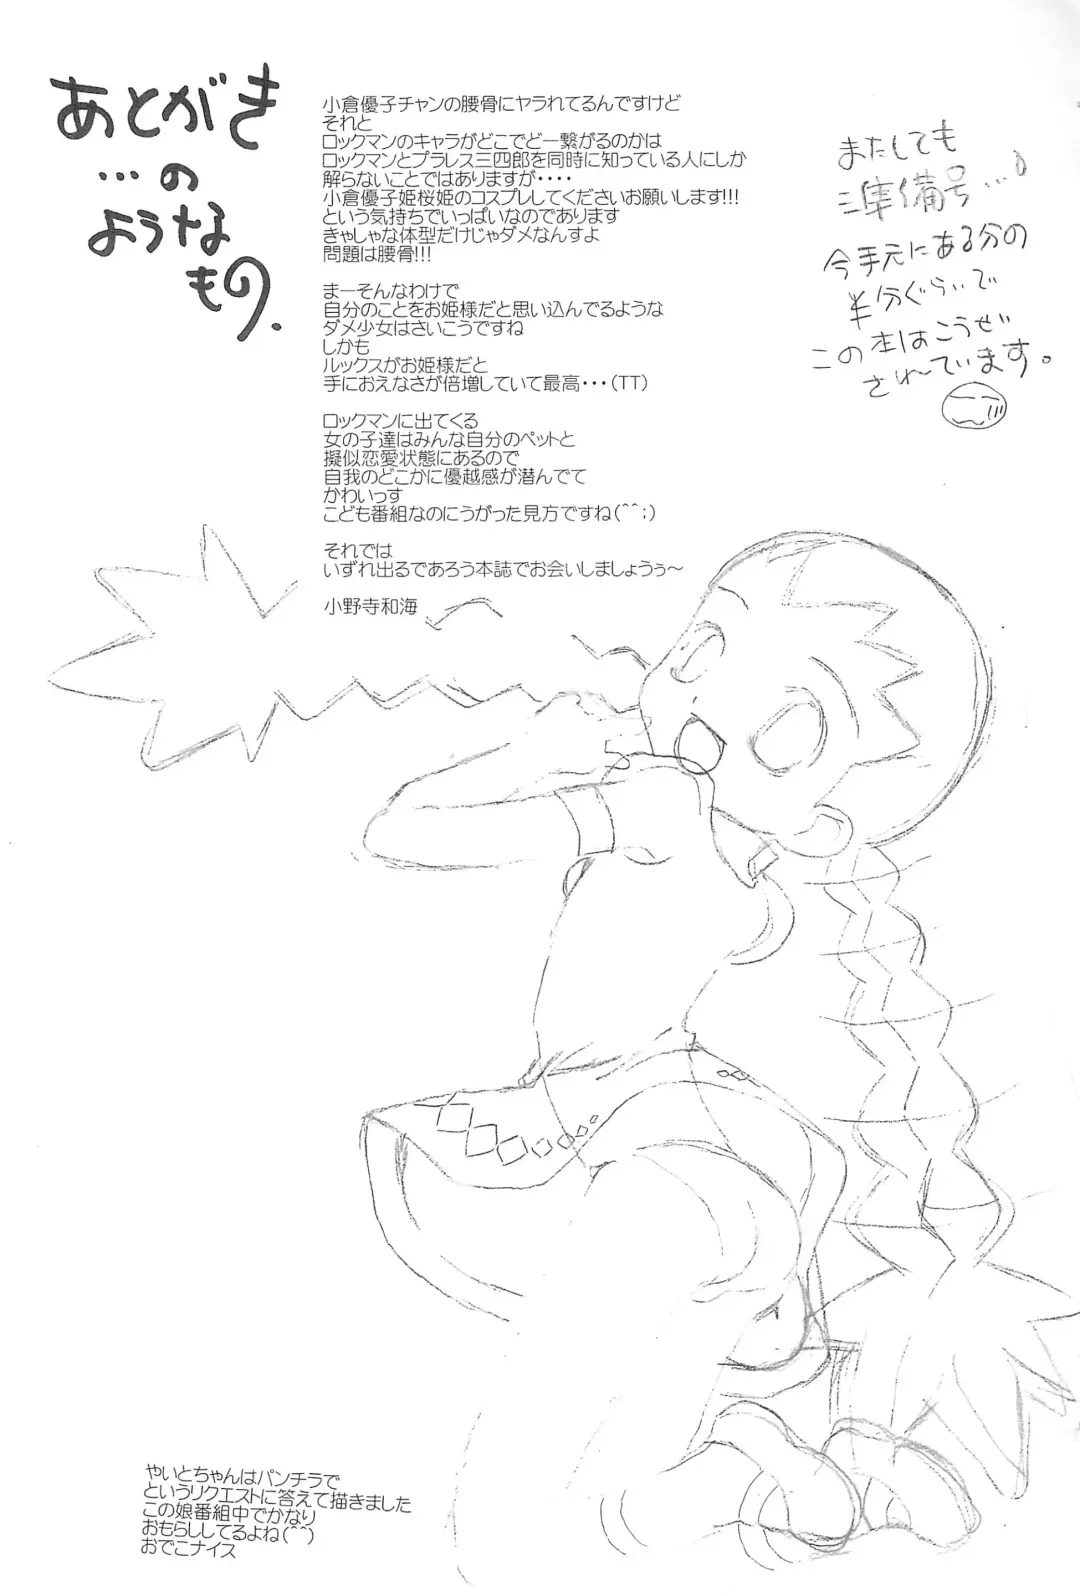 あとがき
…の
ような
もの.
小倉優子チャンの腰骨にヤラれてるんですけど
それと
ロックマンのキャラがどこでど一繋がるのかは
ロックマンとプラレス三四郎を同時に知っている人にしか
解らないことではありますが・・・・
小倉優子姫桜姫のコスプレしてくださいお願いします!!!
という気持ちでいっぱいなのであります
きゃしゃな体型だけじゃダメなんすよ
問題は腰骨!!!
まーそんなわけで
自分のことをお姫様だと思い込んでるような
ダメ少女はさいこうですね
しかも
ルックスがお姫様だと
手におえなさが倍増していて最高・・・(TT)
ロックマンに出てくる
女の子達はみんな自分のペットと
擬似恋愛状態にあるので
自我のどこかに優越感が潜んでて
かわいっす
こども番組なのにうがった見方ですね(^^;)
それでは
いずれ出るであろう本誌でお会いしましょうぅ～
小野寺和海
またしても
準備号…
今手元にある分の
半分ぐらいで
この本はこうせい
されています。